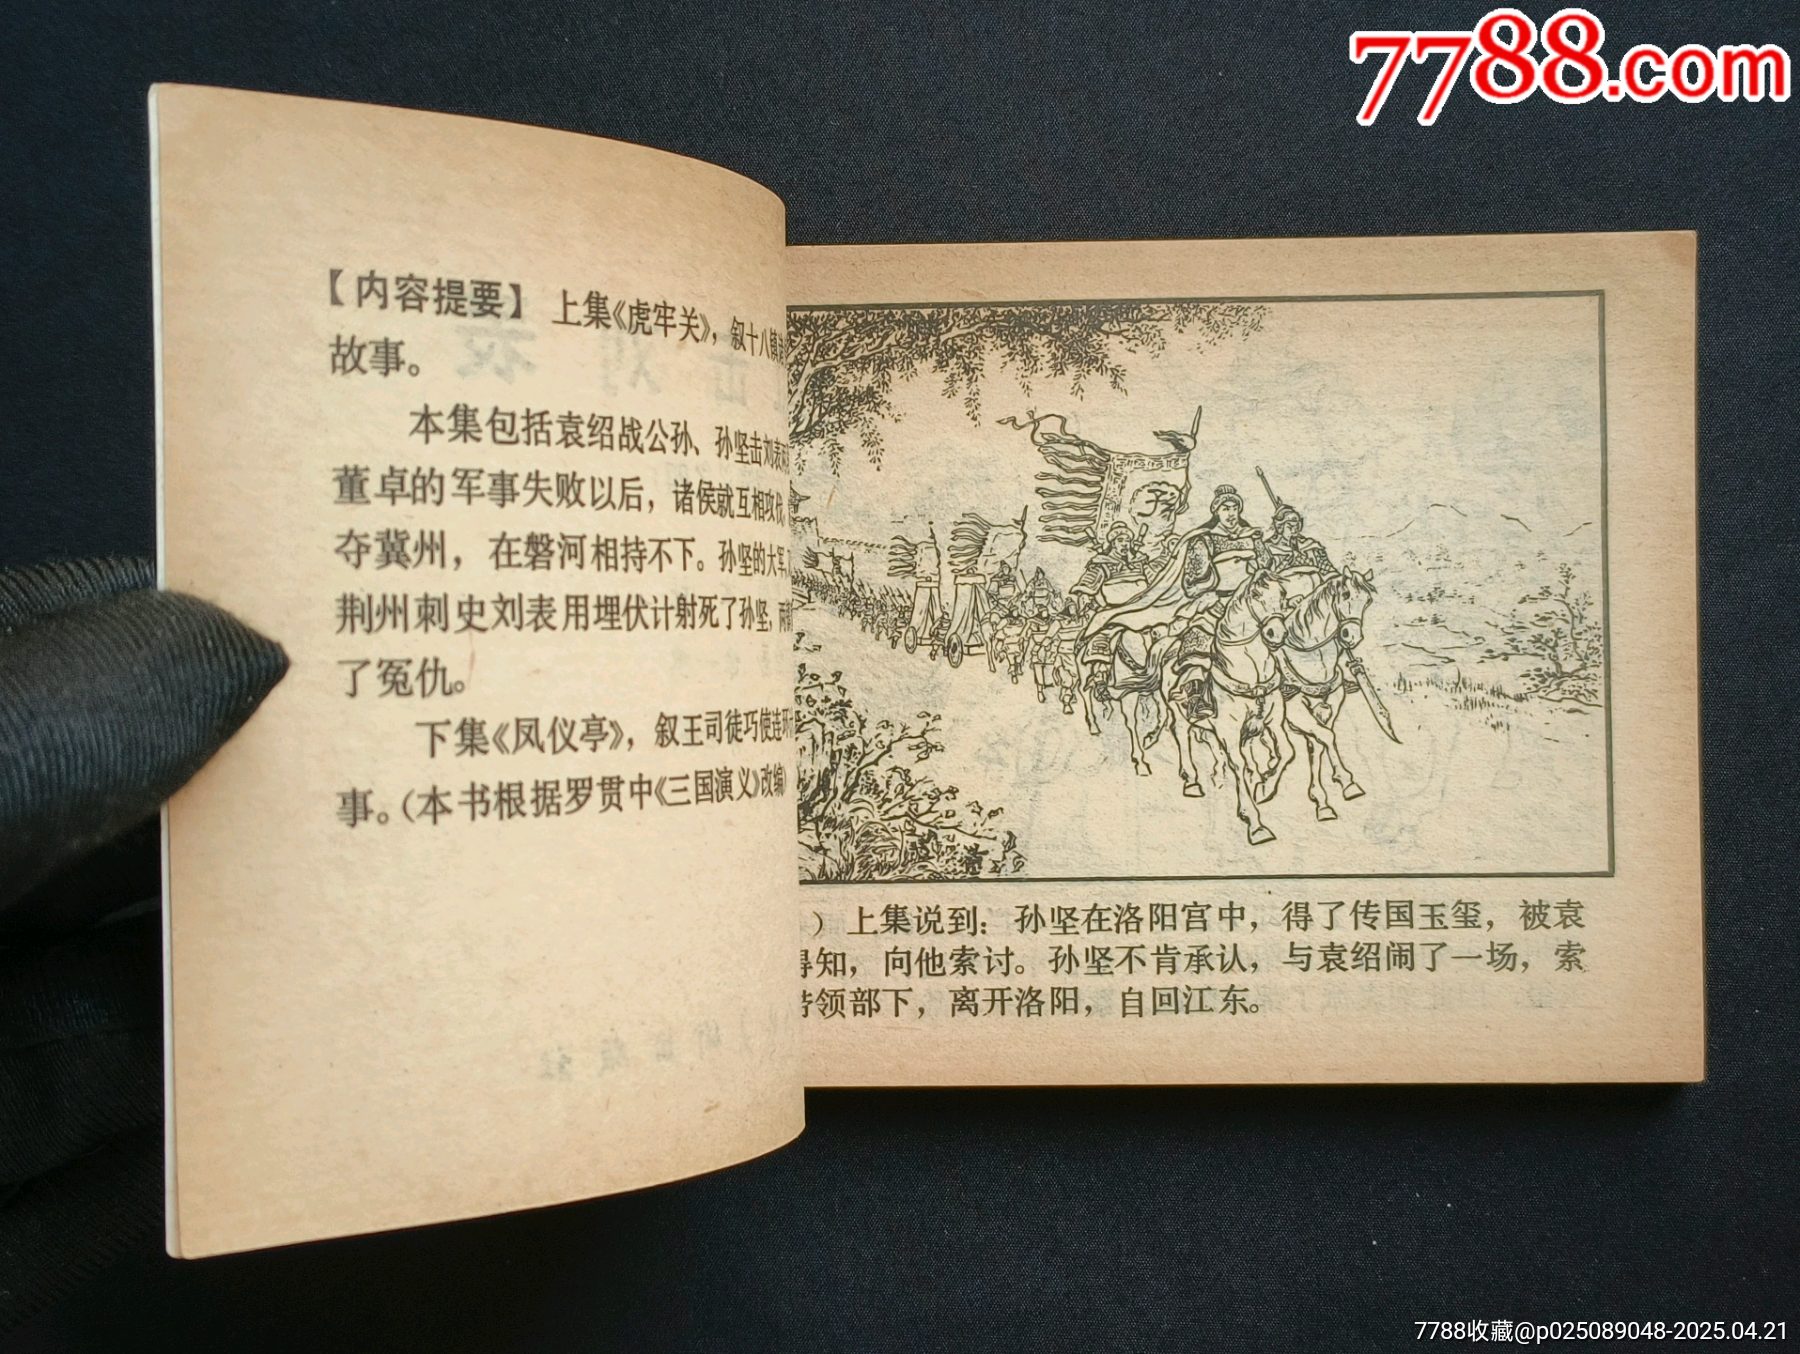 7788.com
【内容提要】 上集《虎牢关》，叙十八镇
故事。
本集包括袁绍战公孙、孙坚击刘表
董卓的军事失败以后，诸侯就互相攻伐
夺冀州，在磐河相持不下。孙坚的大军
荆州刺史刘表用埋伏计射死了孙坚，两
了冤仇。
下集《凤仪亭》，叙王司徒巧使连环
事。（本书根据罗贯中《三国演义》改编）
孙
）上集说到：孙坚在洛阳宫中，得了传国玉玺，被袁
得知，向他索讨。孙坚不肯承认，与袁绍闹了一场，索
带领部下，离开洛阳，自回江东。
7788收藏@p025089048-2025.04.21